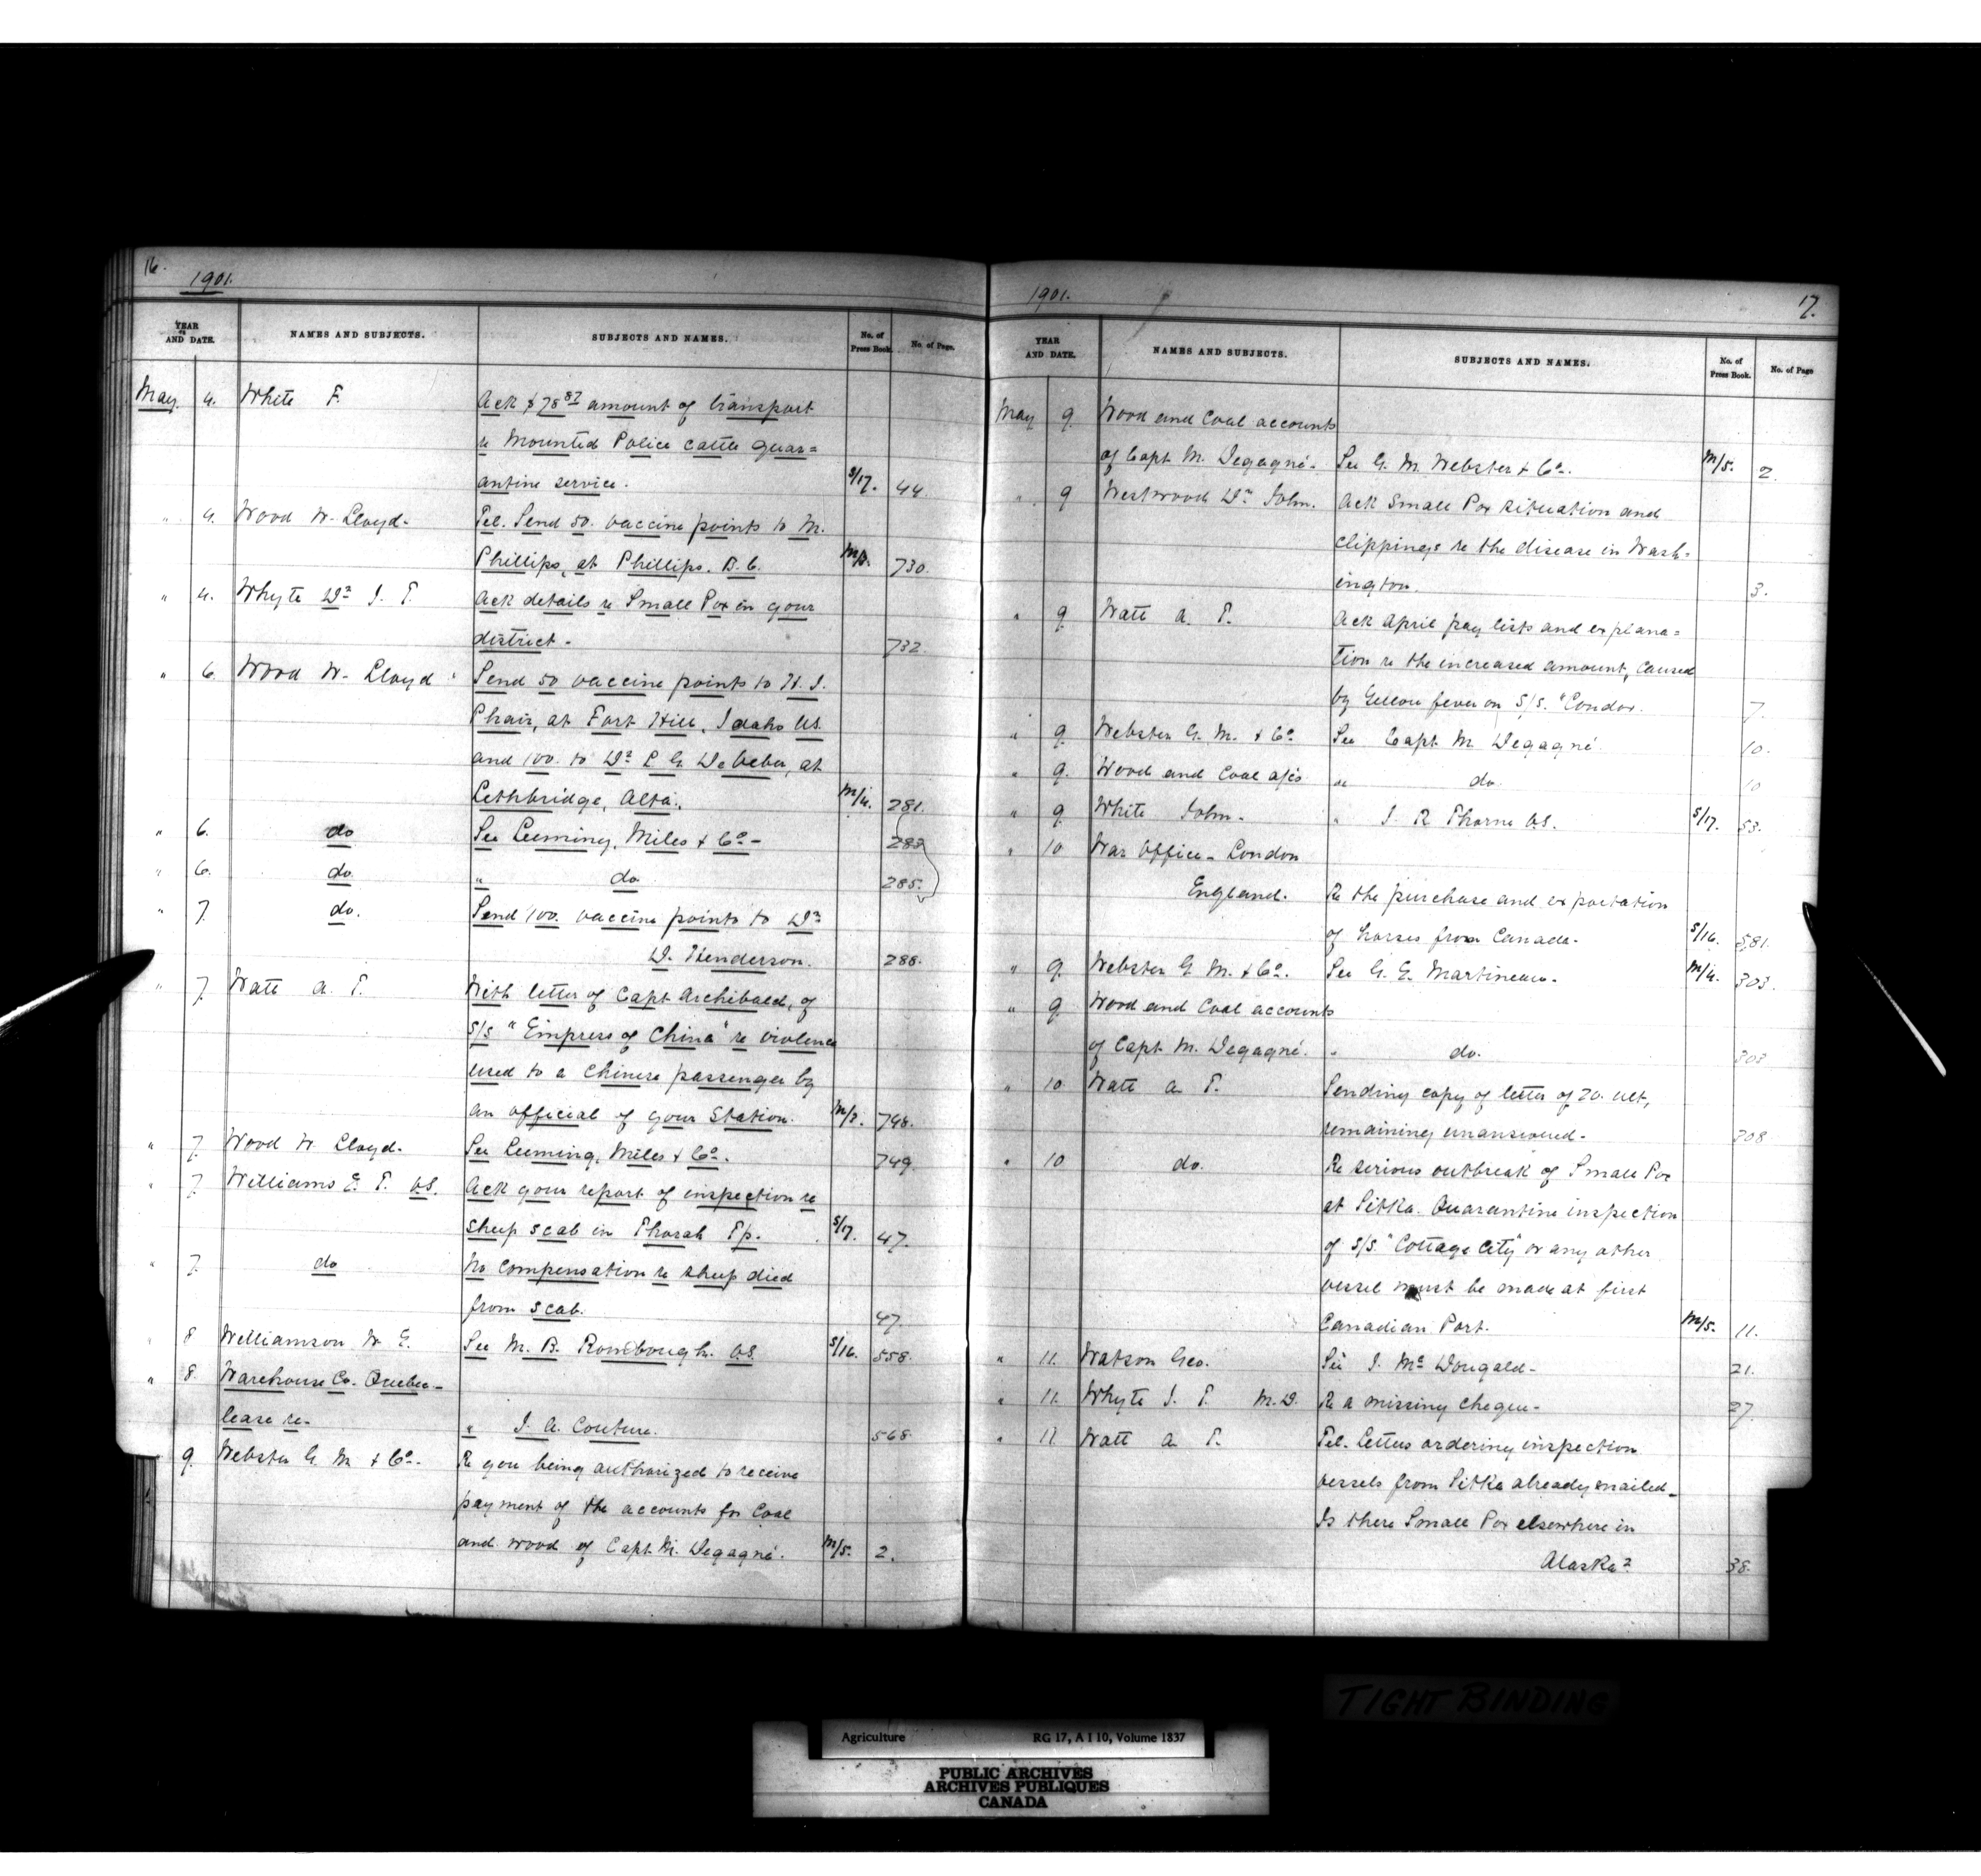 16.
1901.
YEAR AND DATE. NAMES AND SUBJECTS. SUBJECTS AND NAMES. No. of Press Book. No. of Page.
May. 4. White F. Ack $78 87 amount of transport
re Mounted Police cattle quar=
antine service. S/17. 44.
" 4. Wood W. Lloyd- Tel. Send 50. vaccine points to M.
Phillips, at Phillips. B.C. M/3. 730.
" 4. Whyte Dr J. T. Ack details re Small Pox in your
district- 732.
" 6. Wood W. Lloyd Send 50 vaccine points to H. J.
Phair, at Fort Hill, Idaho US.
and 100. to Dr L G. De Veber, at
Lethbridge, Alta. M/4. 281.
" 6. do See Leeming, Miles & Co- 283
" 6. do. " do 285.
" 7. do. Send 100. vaccine points to Dr
D. Henderson. 288.
" 7. Watt A. T. With letter of Capt Archibald, of
S/S "Empress of China" re violence
used to a Chinese passenger by
an official of your Station. M/3. 748.
" 7. Wood W. Lloyd. See Leeming, Miles & Co. 749.
" 7. Williams E. T. V.S. Ack your report of inspection re
sheep scab in Thorah Tp. S/17. 47.
" 7. do No compensation re sheep died
from scab. 47
" 8 Williamson W E. See M. B. Rombough. V.S. S/16. 558.
" 8. Warehouse Co. Quebec-
lease re- " J. A. Couture. 568.
9. Webster G. M & Co- Re you being authorized to receive
payment of the accounts for Coal
and wood of Capt. M. Degagné. M/5. 2.
1901.
17.
YEAR AND DATE. NAMES AND SUBJECTS. SUBJECTS AND NAMES. No. of Press Book. No. of Page
May 9. Wood and Coal accounts
of Capt M. Degagné- See G. M. Webster & Co. M/5. 2.
" 9 Westwood Dr John. Ack Small Pox situation and
clippings re the disease in Wash-
ington. 3.
" 9 Watt A. T. Ack April pay lists and explana=
tion re the increased amount, caused
by Yellow fever on S/S. "Condor. 7.
" 9 Webster G. M. & Co See Capt M. Degagné 10.
" 9. Wood and Coal a/cs " do. 10
" 9 White John- " J. R Thorne V.S. S/17. 53.
" 10 War Office- London
England. Re the purchase and exportation
of horses from Canada- S/16. 581.
" 9. Webster G M. & Co. See G. E. Martineau- M/4. 303.
" 9. Wood and Coal accounts
of Capt M. Degagné. " do. 303
" 10 Watt A T. Sending copy of letter of 20. ult,
remaining unanswered- 308
" 10 do. Re serious outbreak of Small Pox
at Sitka. Quarantine inspection
of S/S. "Cottage City" or any other
vessel must be made at first
Canadian Port. M/5. 11.
" 11. Watson Geo. See J. McDougald- 21.
" 11. Whyte J. T. M.D. Re a missing cheque- 27.
" 11 Watt A T. Tel. Letters ordering inspection
vessels from Sitka already mailed-
Is there Small Pox elsewhere in
Alaska? 38.
TIGHT BINDING
Agriculture RG 17, A I 10, Volume 1837
PUBLIC ARCHIVES
ARCHIVES PUBLIQUES
CANADA